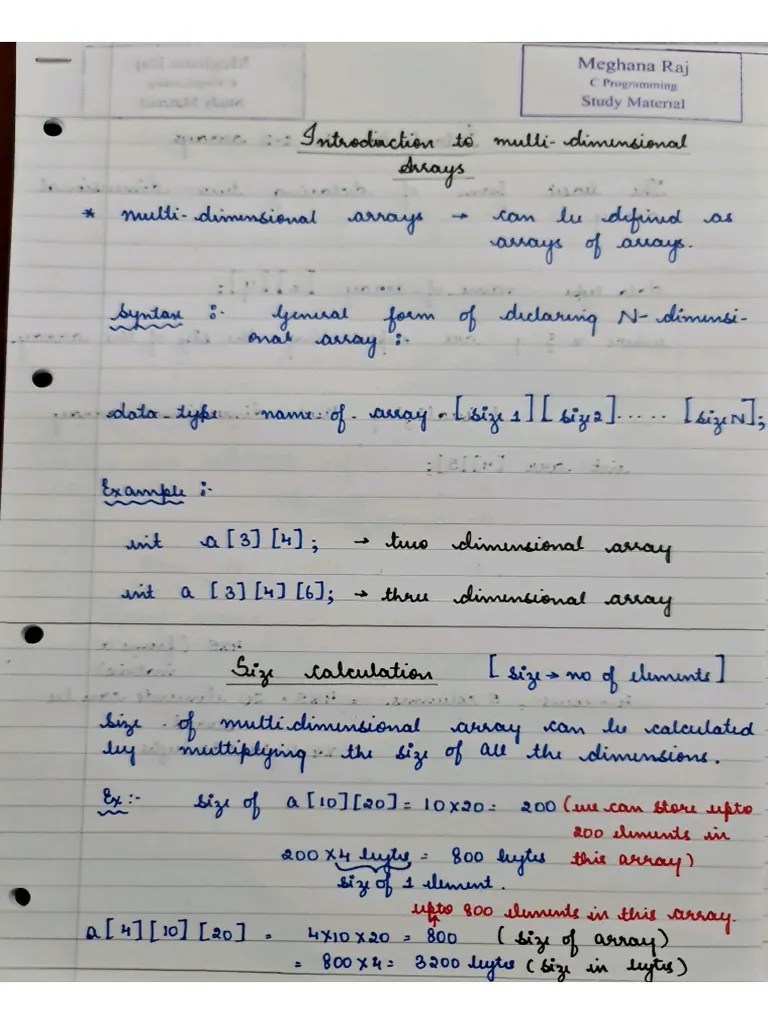 Meghana Raj
C Programming
Study Material
Introduction to multi-dimensional
Arrays
* multi-dimensional arrays → can be defined as
arrays of arrays.
Syntax :- General form of declaring N-dimensi-
onal array :-
data-type name-of-array [size1][size2]..... [sizeN];
Example :-
int a[3][4]; → two dimensional array
int a [3][4][6]; → three dimensional array
Size calculation [size → no of elements]
Size of multidimensional array can be calculated
by multiplying the size of all the dimensions.
Ex:- size of a[10][20] = 10×20 = 200 (we can store upto
200 elements in
200 × 4 bytes = 800 bytes this array)
size of 1 element.
upto 800 elements in this array.
a[4][10][20] = 4×10×20 = 800 (size of array)
= 800×4 = 3200 bytes (size in bytes)